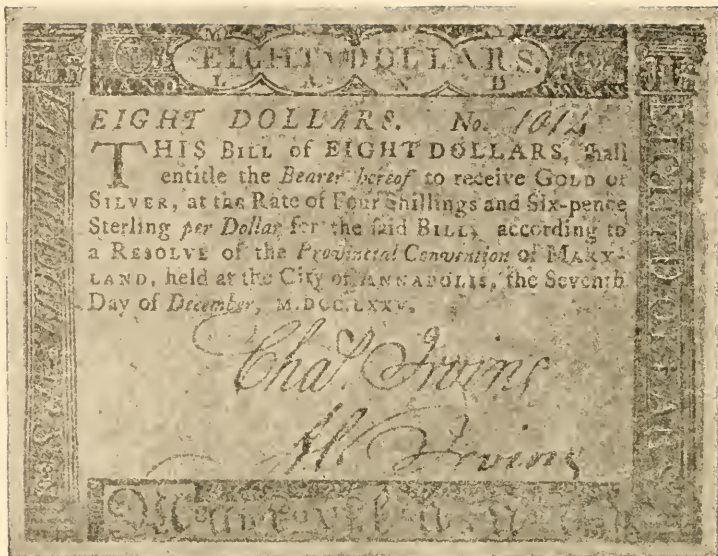 EIGHT DOLLARS.
EIGHT DOLLARS. No. 1012
THIS BILL of EIGHT DOLLARS, shall
entitle the Bearer hereof to receive GOLD or
SILVER, at the Rate of Four Shillings and Six-pence
Sterling per Dollar for the said BILL, according to
a RESOLVE of the Provincial Convention of MARY-
LAND, held at the City of ANNAPOLIS, the Seventh
Day of December, M.DCC.LXXV.
Chas. Irvine
Irvine